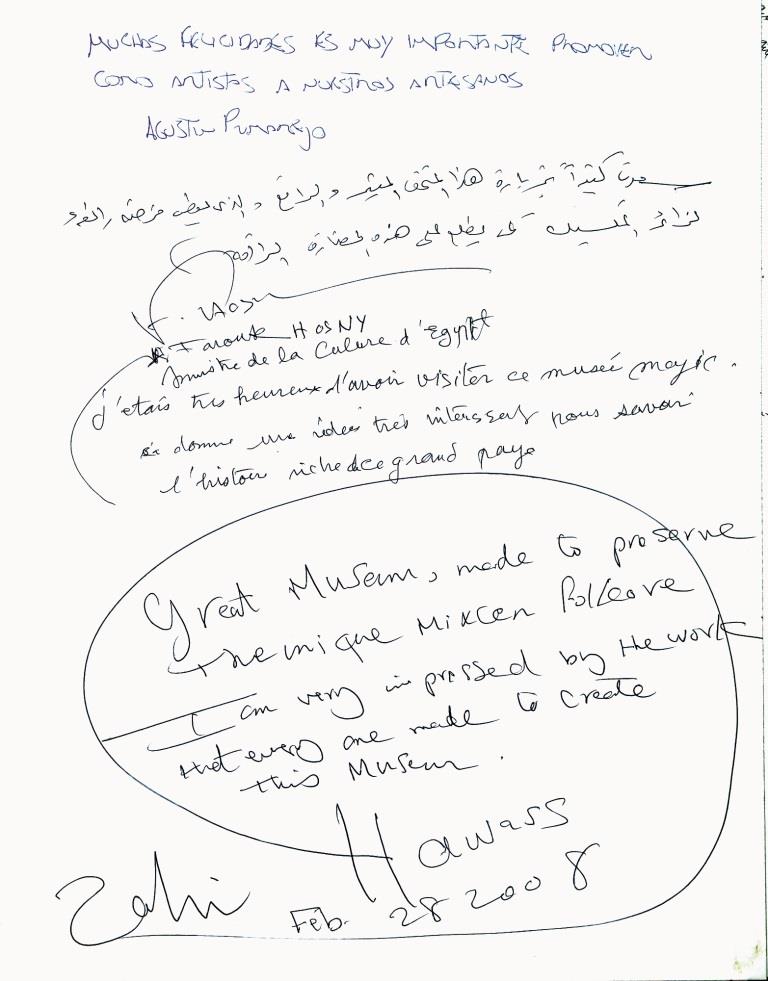 MUCHAS FELICIDADES ES MUY IMPORTANTE PROMOVER
COMO ARTISTAS A NUESTROS ARTESANOS
AGUSTIN
كثيراً بزيارة هذا المتحف المثير والرائع والذى يعطى فرصة
لزائر المكسيك لكى يطلع على هذه الحضارة الراقية
F. Hosny
Farouk HOSNY
ministre de la Culure d'Egypt
j'etais tres heureux d'avoir visiter ce museé magic.
donne une ideé très interssent pous savoir
l'histoir riche de ce grand paye
Great Museum, made to preserve
the unique Mixcen Folleore
I am very impressed by the work
that every one made to create
this Museum.
Zahi Hawass
Feb. 28 2008